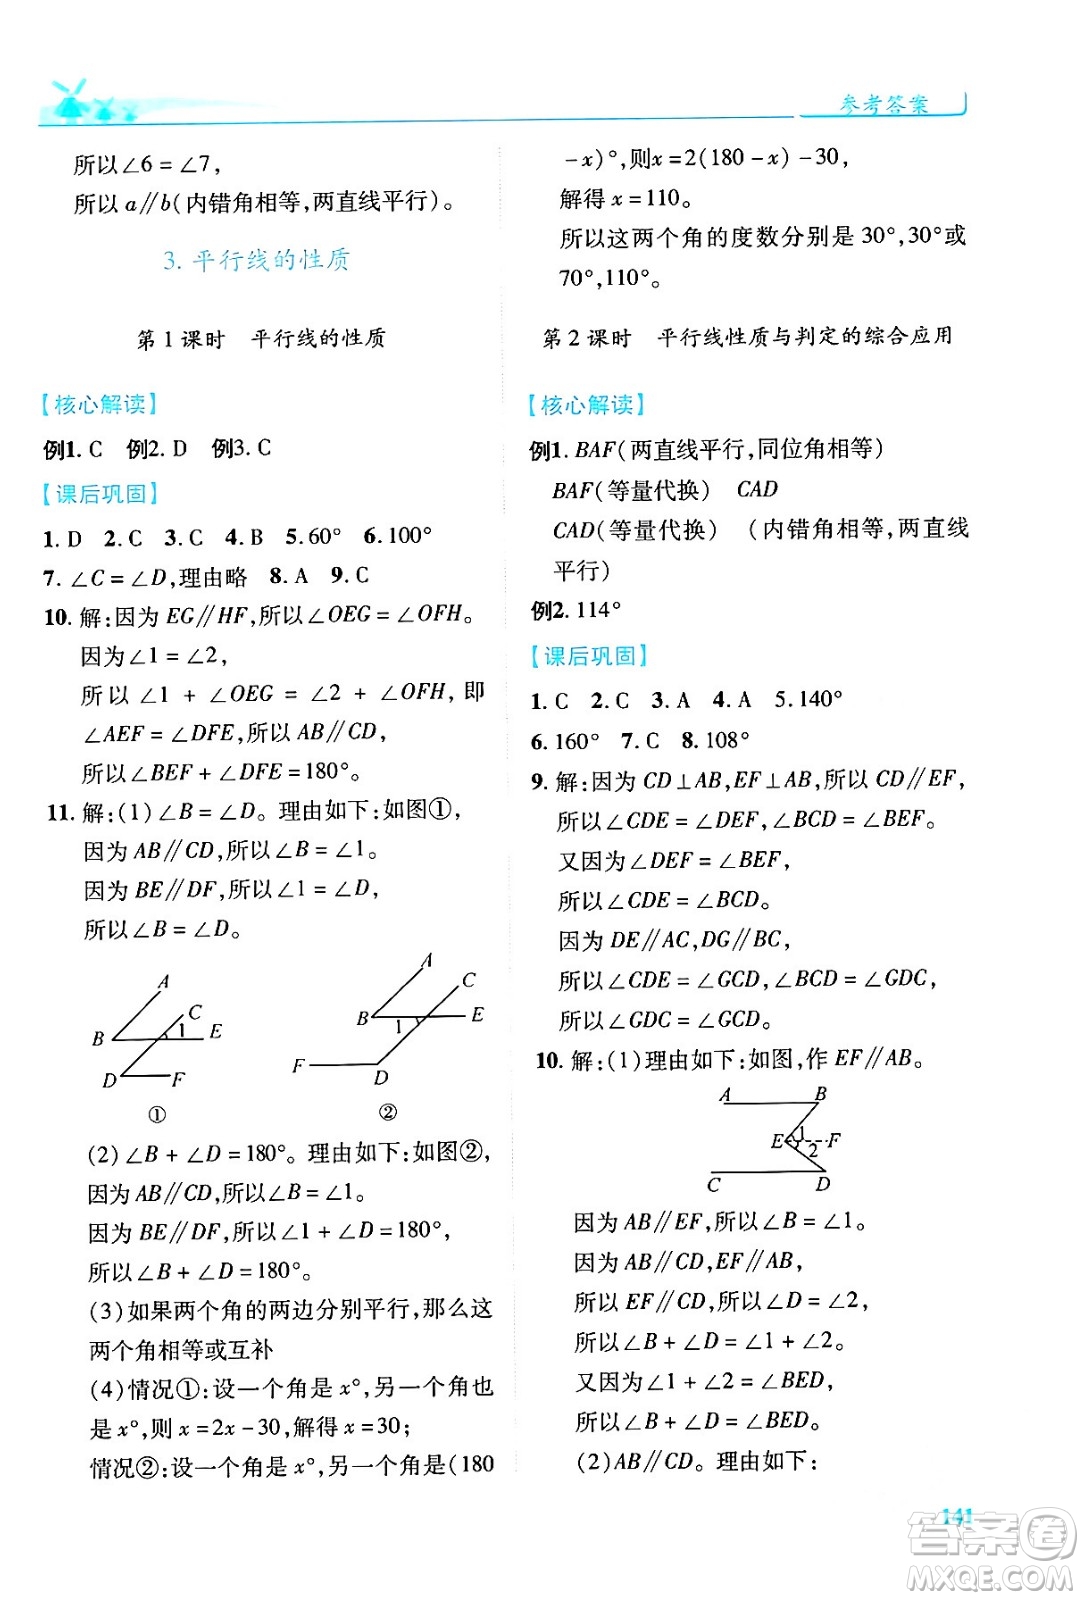 参考答案
所以∠6=∠7,
所以 a∥b(内错角相等,两直线平行)。
3. 平行线的性质
第 1 课时　平行线的性质
【核心解读】
例1. C　例2. D　例3. C
【课后巩固】
1. D　2. C　3. C　4. B　5. 60°　6. 100°
7. ∠C=∠D,理由略　8. A　9. C
10. 解:因为 EG∥HF,所以∠OEG=∠OFH。
因为∠1=∠2,
所以∠1+∠OEG=∠2+∠OFH,即
∠AEF=∠DFE,所以 AB∥CD,
所以∠BEF+∠DFE=180°。
11. 解:(1)∠B=∠D。理由如下:如图①,
因为 AB∥CD,所以∠B=∠1。
因为 BE∥DF,所以∠1=∠D,
所以∠B=∠D。
A
C
B
1
E
D
F
①
A
C
B
1
E
F
D
②
(2)∠B+∠D=180°。理由如下:如图②,
因为 AB∥CD,所以∠B=∠1。
因为 BE∥DF,所以∠1+∠D=180°,
所以∠B+∠D=180°。
(3)如果两个角的两边分别平行,那么这
两个角相等或互补
(4)情况①:设一个角是 x°,另一个角也
是 x°,则 x=2x-30,解得 x=30;
情况②:设一个角是 x°,另一个角是(180
-x)°,则x=2(180-x)-30,
解得 x=110。
所以这两个角的度数分别是 30°,30°或
70°,110°。
第 2 课时　平行线性质与判定的综合应用
【核心解读】
例1. BAF(两直线平行,同位角相等)
BAF(等量代换)　CAD
CAD(等量代换)　(内错角相等,两直线
平行)
例2. 114°
【课后巩固】
1. C　2. C　3. A　4. A　5. 140°
6. 160°　7. C　8. 108°
9. 解:因为 CD⊥AB,EF⊥AB,所以 CD∥EF,
所以∠CDE=∠DEF,∠BCD=∠BEF。
又因为∠DEF=∠BEF,
所以∠CDE=∠BCD。
因为 DE∥AC,DG∥BC,
所以∠CDE=∠GCD,∠BCD=∠GDC,
所以∠GDC=∠GCD。
10. 解:(1)理由如下:如图,作 EF∥AB。
A
B
E
1
2
F
C
D
因为 AB∥EF,所以∠B=∠1。
因为 AB∥CD,EF∥AB,
所以 EF∥CD,所以∠D=∠2,
所以∠B+∠D=∠1+∠2。
又因为∠1+∠2=∠BED,
所以∠B+∠D=∠BED。
(2)AB∥CD。理由如下:
141
答案圈
MXQE.COM